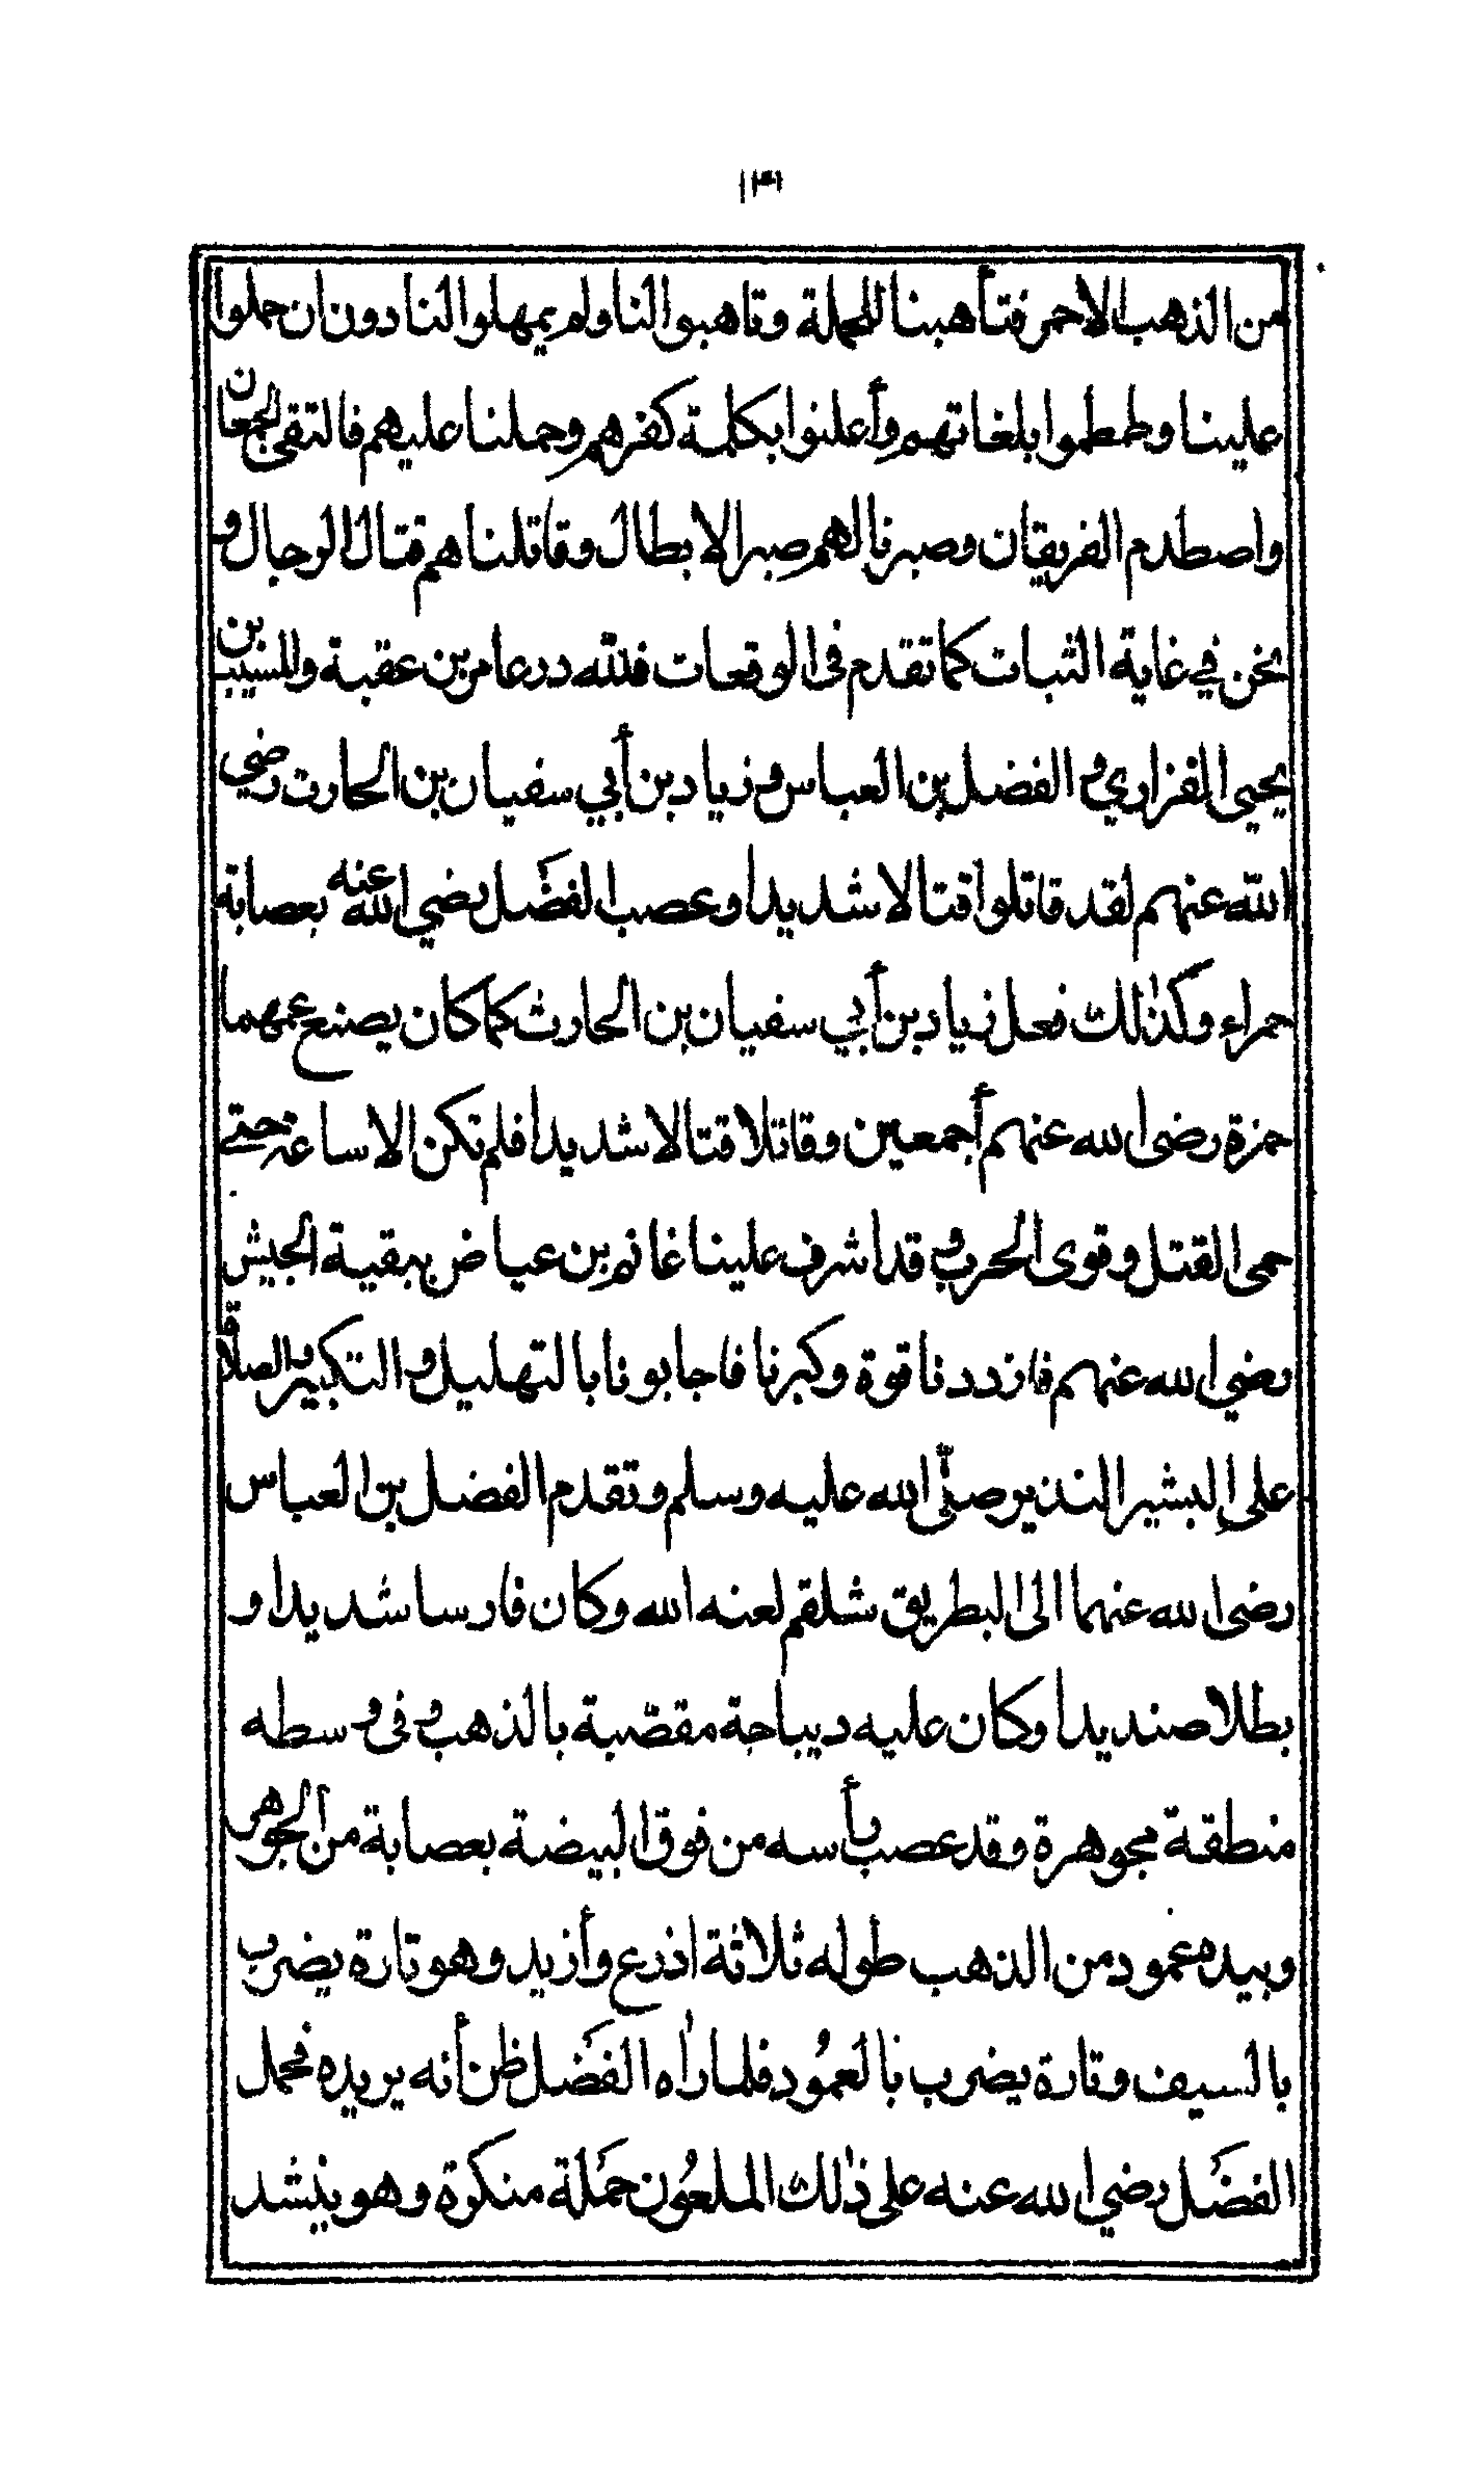 ١٣١
من الذهب الاحمر فتأهبنا للحملة وتاهبوا لنا ولم يمهلوا لنا دون ان حملوا
علينا وطمطموا بلغاتهم وأعلنوا بكلمة كفرهم وحملنا عليهم فالتقى الجمعان
واصطدم الفريقان وصبرنا لهم صبر الابطال وقاتلناهم قتال الرجال و
نحن في غاية الثبات كما تقدم فى الوقعات فلله در عامر بن عقبة والمسيب بن
يحيى الفزاري والفضل بن العباس وزياد بن أبي سفيان بن الحارت رضي
الله عنهم لقد قاتلوا قتالا شديدا وعصب الفضل رضي الله عنه بعصابة
حمراء وكذلك فعل زياد بن أبي سفيان بن الحارث كما كان يصنع عمهما
حمزة رضى الله عنهم أجمعين وقاتلا قتالا شديدا فلم تكن الا ساعة حتى
حمى القتل وقوى الحرب وقد اشرف علينا غانم بن عياض ببقية الجيش
رضي الله عنهم فازددنا قوة وكبرنا فاجابونا بالتهليل والتكبير والصلاة
على البشير النذير صلّى الله عليه وسلم وتقدم الفضل بن العباس
رضى الله عنهما الى البطريق شلقم لعنه الله وكان فارسا شديدا و
بطلا صنديدا وكان عليه ديباجة مقصّبة بالذهب وفى وسطه
منطقة مجوهرة وقد عصب رأسه من فوق البيضة بعصابة من الجوهر
وبيده عمود من الذهب طوله ثلاثة اذرع وأزيد وهو تارة يضرب
بالسيف وتارة يضرب بالعمُود فلما رأه الفضَل ظن أنه يريده فحمل
الفضَل رضي الله عنه على ذٰلك الملعُون حمَلة منكرة وهو ينشد